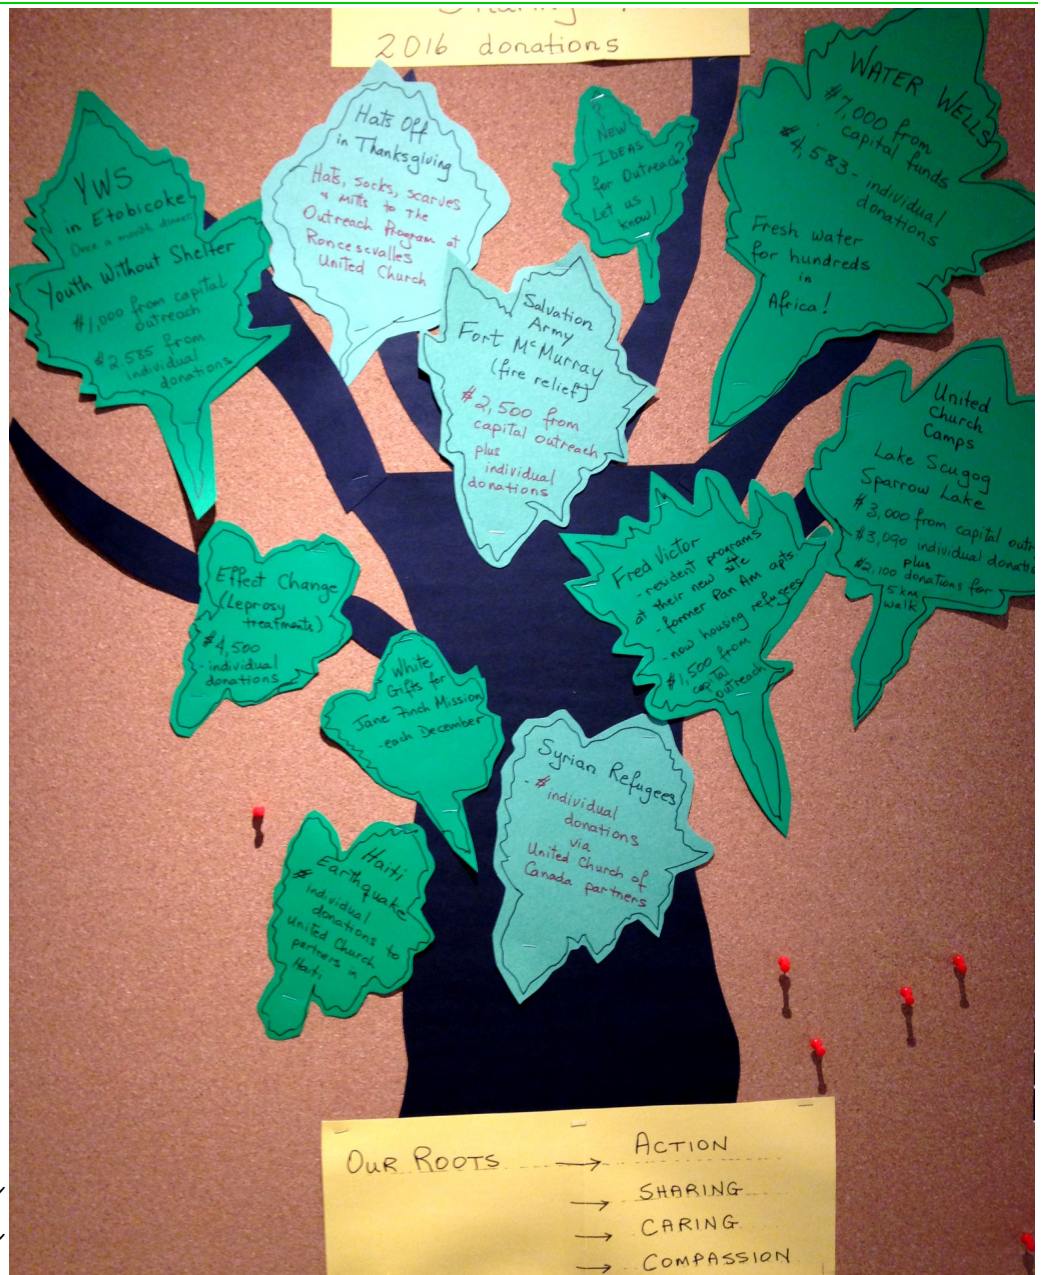 2016 donations
YWS
in Etobicoke
Once a month dinner
Youth Without Shelter
$1,000 from capital
outreach
$2,585 from
individual
donations
Hats Off
in Thanksgiving
Hats, socks, scarves
& mitts to the
Outreach Program at
Roncescvalles
United Church
NEW
IDEAS
for Outreach?
Let us
know!
WATER WELLS
$7,000 from
capital funds
$4,583 - individual
donations
Fresh water
for hundreds
in
Africa!
Salvation
Army
Fort McMurray
(fire relief)
$2,500 from
capital outreach
plus
individual
donations
United
Church
Camps
Lake Scugog
Sparrow Lake
$3,000 from capital outr
$3,090 individual donatio
plus
$2,100 donations for
5 km
walk
Effect Change
(Leprosy
treatments)
$4,500
- individual
donations
Fred Victor
- resident programs
at their new site
- former Pan Am apts
- now housing refugees
$1,500 from
capital
outreach
White
Gifts for
Jane Finch Mission
- each December
Syrian Refugees
- $ individual
donations
via
United Church of
Canada partners
Haiti
Earthquake
$ individual
donations to
United Church
partners in
Haiti
OUR ROOTS → ACTION
→ SHARING
→ CARING
→ COMPASSION